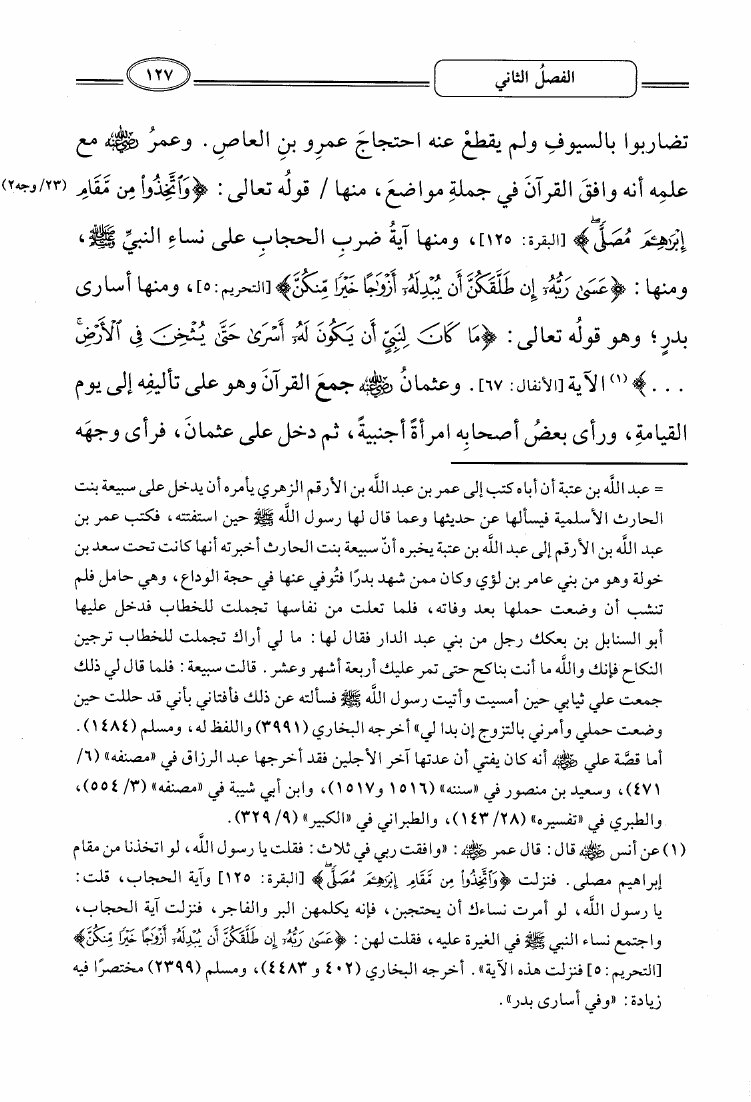 الفصلُ الثاني
١٢٧
تضاربوا بالسيوفِ ولم يقطعْ عنه احتجاجَ عمرِو بنِ العاصِ. وعمرُ رضي الله عنه مع
علمِه أنه وافقَ القرآنَ في جملةِ مواضعَ، منها / قولُه تعالى: ﴿وَٱتَّخِذُواْ مِن مَّقَامِ (٢٣/وجه٢)
إِبْرَٰهِـۧمَ مُصَلًّىۖ﴾ [البقرة: ١٢٥]، ومنها آيةُ ضربِ الحجابِ على نساءِ النبيِّ ﷺ،
ومنها: ﴿عَسَىٰ رَبُّهُۥٓ إِن طَلَّقَكُنَّ أَن يُبْدِلَهُۥٓ أَزْوَٰجًا خَيْرًا مِّنكُنَّ﴾ [التحريم:٥]، ومنها أسارى
بدرٍ؛ وهو قولُه تعالى: ﴿مَا كَانَ لِنَبِيٍّ أَن يَكُونَ لَهُۥٓ أَسْرَىٰ حَتَّىٰ يُثْخِنَ فِى ٱلْأَرْضِۚ
...﴾(١) الآية [الأنفال: ٦٧]. وعثمانُ رضي الله عنه جمعَ القرآنَ وهو على تأليفِه إلى يومِ
القيامةِ، ورأى بعضُ أصحابِه امرأةً أجنبيةً، ثم دخل على عثمانَ، فرأى وجهَه
= عبد اللَّه بن عتبة أن أباه كتب إلى عمر بن عبد اللَّه بن الأرقم الزهري يأمره أن يدخل على سبيعة بنت
الحارث الأسلمية فيسألها عن حديثها وعما قال لها رسول اللَّه ﷺ حين استفتته، فكتب عمر بن
عبد اللَّه بن الأرقم إلى عبد اللَّه بن عتبة يخبره أنّ سبيعة بنت الحارث أخبرته أنها كانت تحت سعد بن
خولة وهو من بني عامر بن لؤي وكان ممن شهد بدرًا فتُوفي عنها في حجة الوداع، وهي حامل فلم
تنشب أن وضعت حملها بعد وفاته، فلما تعلت من نفاسها تجملت للخطاب فدخل عليها
أبو السنابل بن بعكك رجل من بني عبد الدار فقال لها: ما لي أراك تجملت للخطاب ترجين
النكاح فإنك واللَّه ما أنت بناكح حتى تمر عليك أربعة أشهر وعشر. قالت سبيعة: فلما قال لي ذلك
جمعت علي ثيابي حين أمسيت وأتيت رسول اللَّه ﷺ فسألته عن ذلك فأفتاني بأني قد حللت حين
وضعت حملي وأمرني بالتزوج إن بدا لي» أخرجه البخاري (٣٩٩١) واللفظ له، ومسلم (١٤٨٤).
أما قصَّة علي رضي الله عنه أنه كان يفتي أن عدتها آخر الأجلين فقد أخرجها عبد الرزاق في «مصنفه» (٦/
٤٧١)، وسعيد بن منصور في «سننه» (١٥١٦ و١٥١٧)، وابن أبي شيبة في «مصنفه» (٣/ ٥٥٤)،
والطبري في «تفسيره» (٢٨/ ١٤٣)، والطبراني في «الكبير» (٩/ ٣٢٩).
(١) عن أنس رضي الله عنه قال: قال عمر رضي الله عنه: «وافقت ربي في ثلاث: فقلت يا رسول اللَّه، لو اتخذنا من مقام
إبراهيم مصلى. فنزلت ﴿وَٱتَّخِذُواْ مِن مَّقَامِ إِبْرَٰهِـۧمَ مُصَلًّىۖ﴾ [البقرة: ١٢٥] وآية الحجاب، قلت:
يا رسول اللَّه، لو أمرت نساءك أن يحتجبن، فإنه يكلمهن البر والفاجر، فنزلت آية الحجاب،
واجتمع نساء النبي ﷺ في الغيرة عليه، فقلت لهن: ﴿عَسَىٰ رَبُّهُۥٓ إِن طَلَّقَكُنَّ أَن يُبْدِلَهُۥٓ أَزْوَٰجًا خَيْرًا مِّنكُنَّ﴾
[التحريم:٥] فنزلت هذه الآية». أخرجه البخاري (٤٠٢ و ٤٤٨٣)، ومسلم (٢٣٩٩) مختصرًا فيه
زيادة: «وفي أسارى بدر».